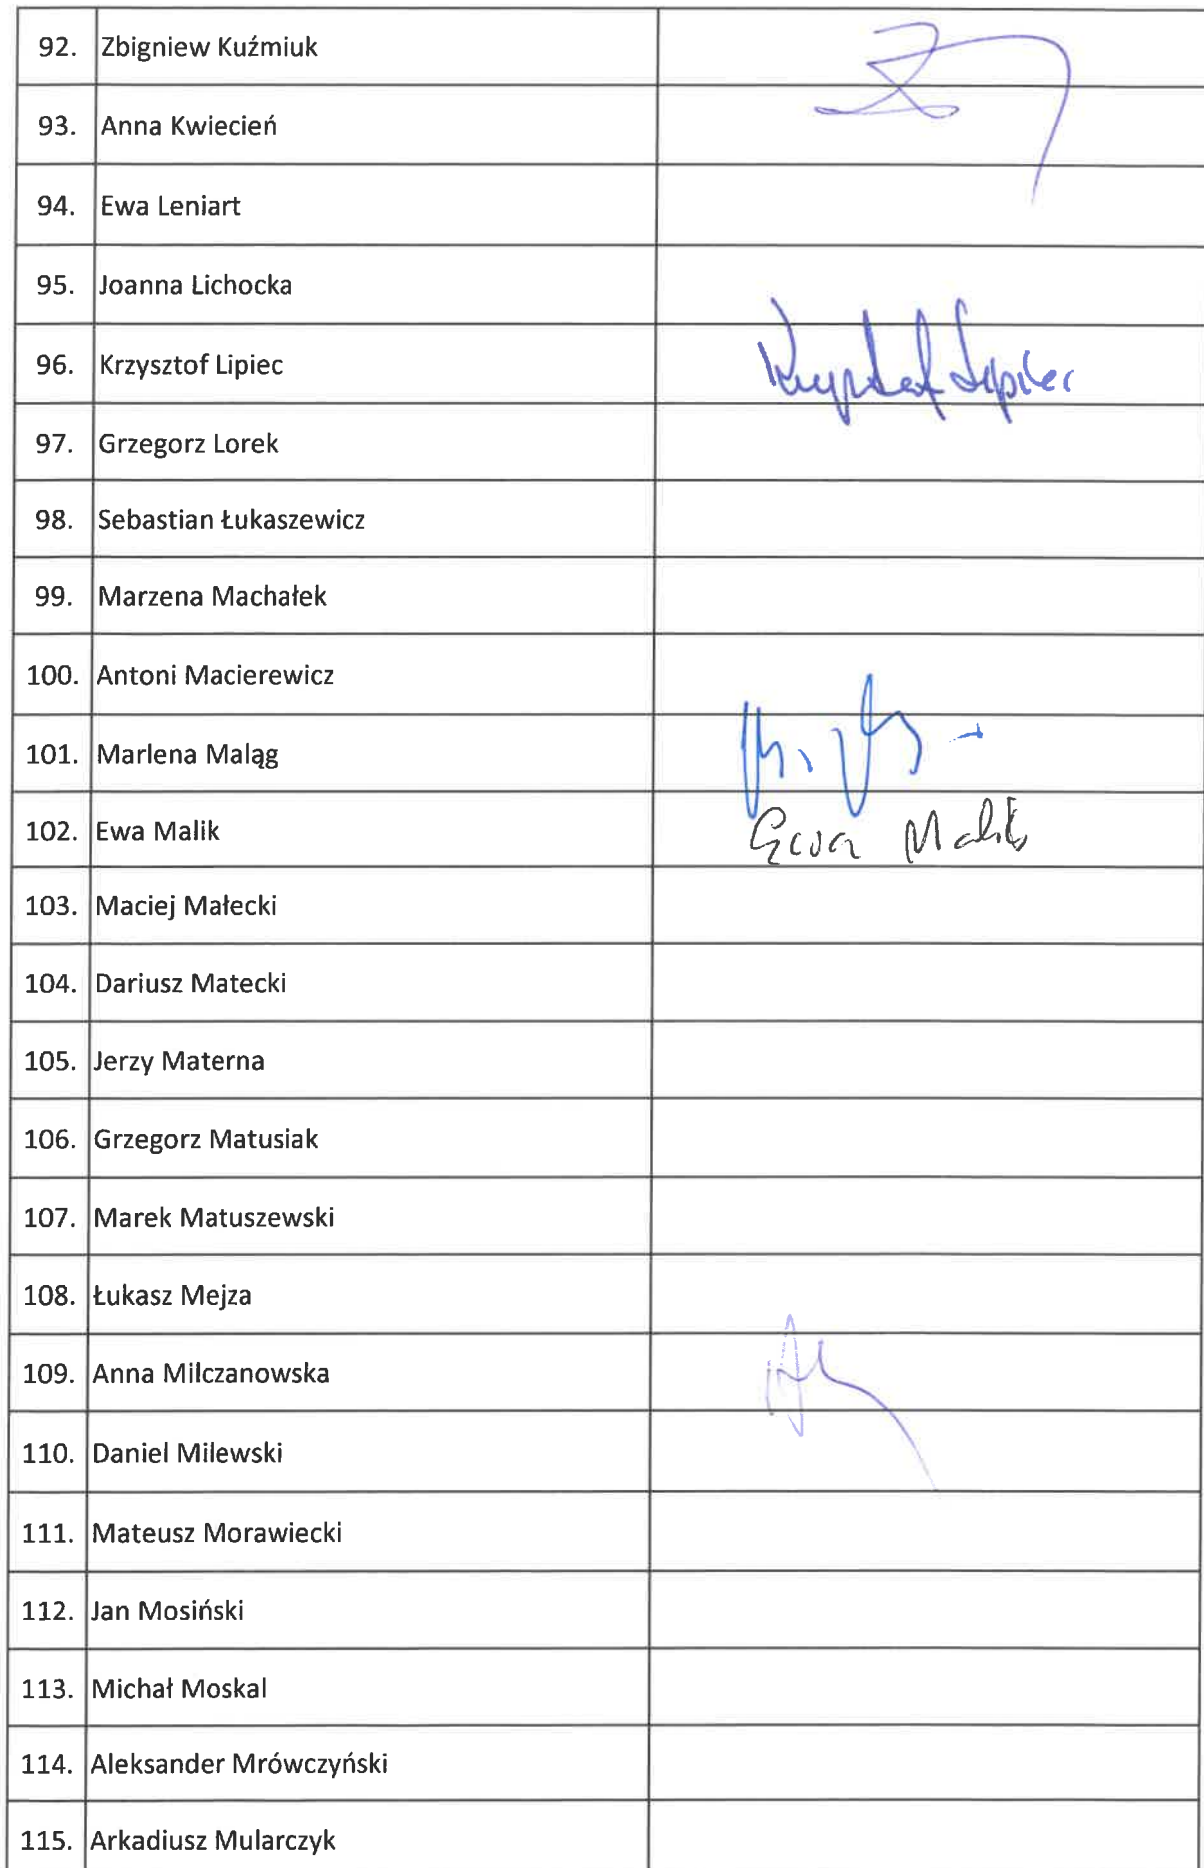 92. Zbigniew Kuźmiuk
93. Anna Kwiecień
94. Ewa Leniart
95. Joanna Lichocka
96. Krzysztof Lipiec Krzysztof Lipiec
97. Grzegorz Lorek
98. Sebastian Łukaszewicz
99. Marzena Machałek
100. Antoni Macierewicz
101. Marlena Maląg
102. Ewa Malik Ewa Malik
103. Maciej Małecki
104. Dariusz Matecki
105. Jerzy Materna
106. Grzegorz Matusiak
107. Marek Matuszewski
108. Łukasz Mejza
109. Anna Milczanowska
110. Daniel Milewski
111. Mateusz Morawiecki
112. Jan Mosiński
113. Michał Moskal
114. Aleksander Mrówczyński
115. Arkadiusz Mularczyk